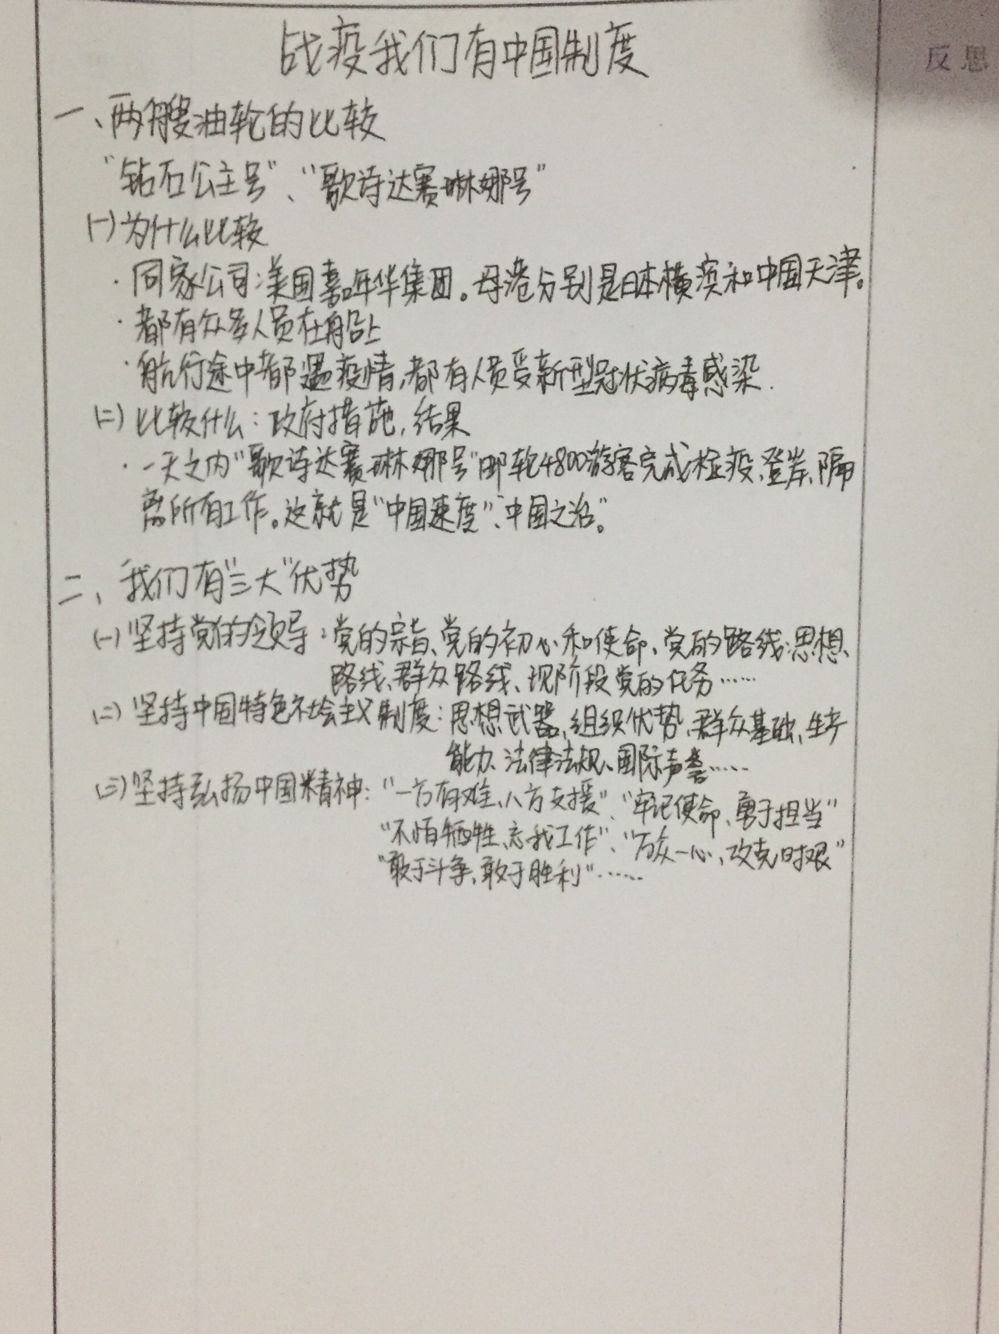 战疫我们有中国制度
反思
一、两艘油轮的比较
“钻石公主号”、“歌诗达赛琳娜号”
(一)为什么比较
·同家公司:美国嘉年华集团。母港分别是日本横滨和中国天津。
·都有众多人员在船上
·航行途中都遇疫情,都有人员受新型冠状病毒感染.
(二)比较什么:政府措施,结果
·一天之内“歌诗达赛琳娜号”邮轮4800游客完成检疫、登岸、隔
离所有工作。这就是“中国速度”、中国之治。”
二、我们有“三大”优势
(一)坚持党的领导:党的宗旨、党的初心和使命、党的路线:思想
路线、群众路线、现阶段党的任务……
(二)坚持中国特色社会主义制度:思想武器、组织优势、群众基础、生产
能力、法律法规、国际声誉……
(三)坚持弘扬中国精神:“一方有难、八方支援”、“牢记使命、勇于担当”
“不怕牺牲、忘我工作”、“万众一心、攻克时艰”
“敢于斗争、敢于胜利”……